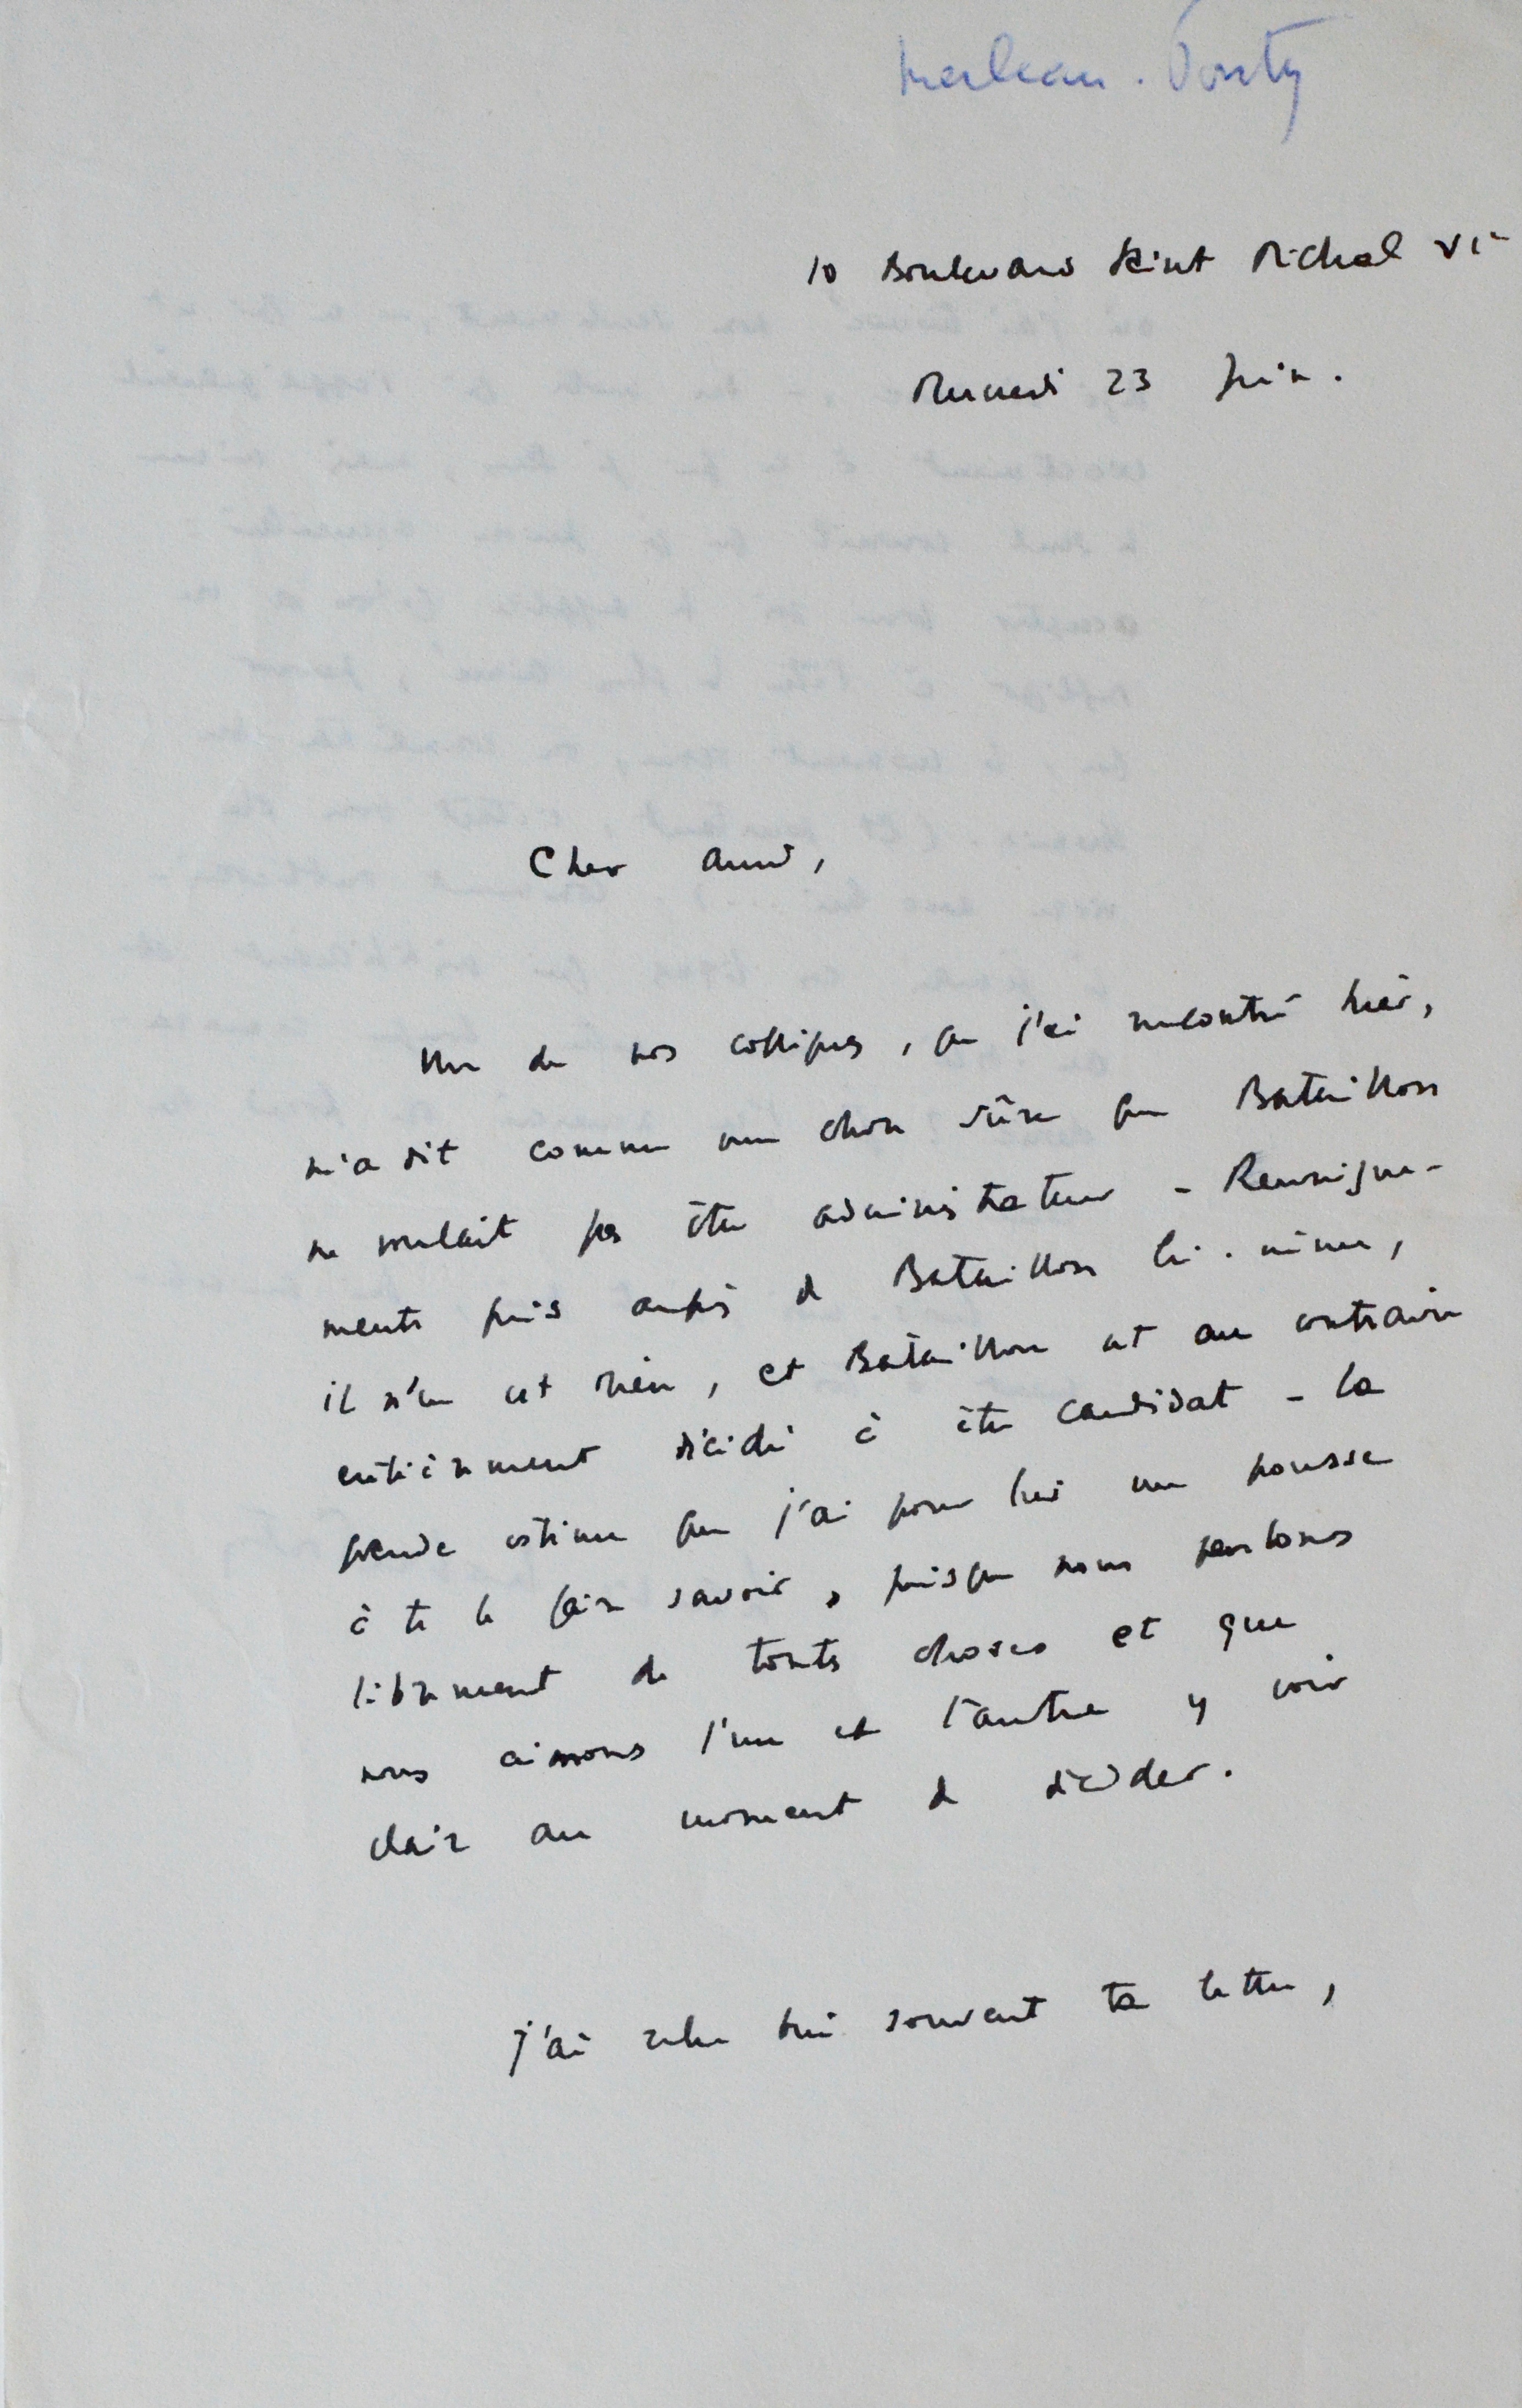 Merleau-Ponty
10 Boulevard Saint Michel VIe
Mercredi 23 Juin.
Cher ami,
Un de nos collègues, que j'ai rencontré hier,
m'a dit comme une chose sûre que Bataillon
ne voulait pas être administrateur – Renseigne-
ments pris auprès de Bataillon lui-même,
il n'en est rien, et Bataillon est au contraire
entièrement décidé à être candidat – la
grande estime que j'ai pour lui me pousse
à te le faire savoir, puisque nous parlons
librement de toutes choses et que
nous aimons l'un et l'autre y voir
clair au moment de décider.
J'ai relu bien souvent ta lettre,